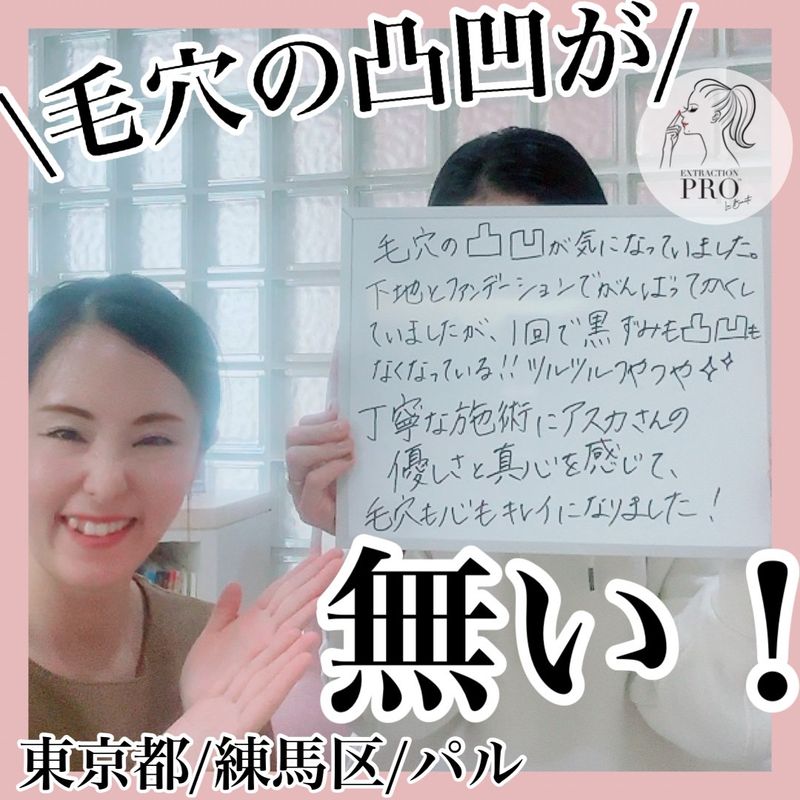 \毛穴の凸凹が/
EXTRACTION
PRO
毛穴の凸凹が気になっていました。
下地とファンデーションでがんばってかくし
ていましたが、1回で黒ずみも凸凹も
なくなっている!!ツルツルつやつや✧✧
丁寧な施術にアスカさんの
優しさと真心を感じて、
毛穴も心もキレイになりました!
無い!
東京都/練馬区/パル